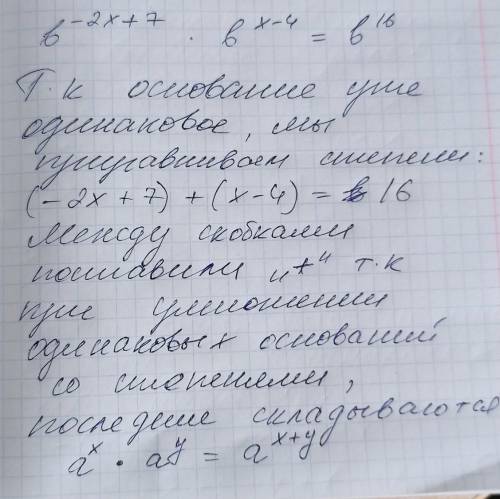 b^{-2x+7} · b^{x-4} = b^{16}
Т.к основание уже
одинаковое, мы
приравниваем степени:
(-2x+7)+(x-4)=16
Между скобками
поставили "+" т.к
при умножении
одинаковых оснований
со степенями,
последние складываются
a^x · a^y = a^{x+y}